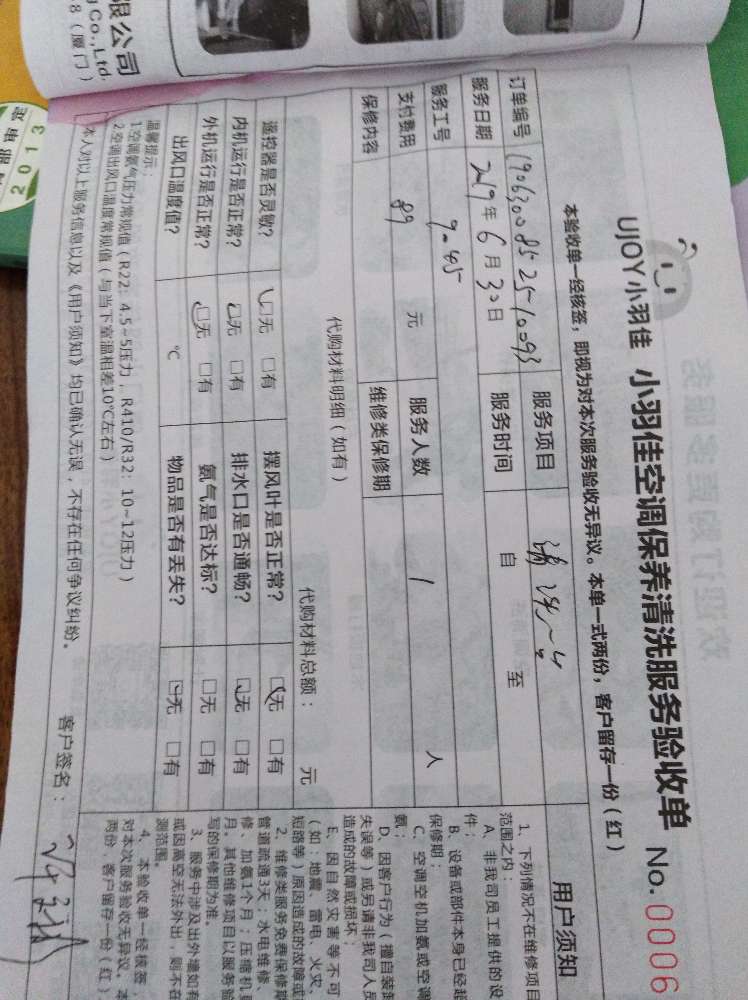 限公司
g Co.,Ltd.
8（厦门）
2013
UJOY小羽佳 小羽佳空调保养清洗服务验收单 No.0006
本验收单一经核签，即视为对本次服务验收无异议。本单一式两份，客户留存一份（红）
订单编号 服务项目
服务日期 2019年6月30日 服务时间 自 至
服务工号 9-45
支付费用 89 元 服务人数 1 人
保修内容 维修类保修期
代购材料明细（如有） 代购材料总额： 元
遥控器是否灵敏? 无 有 摆风叶是否正常? 无 有
内机运行是否正常? 无 有 排水口是否通畅? 无 有
外机运行是否正常? 无 有 氨气是否达标? 无 有
出风口温度值? ℃ 物品是否有丢失? 无 有
温馨提示：
1空调氨气压力常规值（R22：4.5~5压力，R410/R32：10~12压力）
2空调出风口温度常规值（与当下室温相差10℃左右）
本人对以上服务信息以及《用户须知》均已确认无误，不存在任何争议纠纷。 客户签名：
用户须知
1、下列情况不在维修项目
范围之内：
A、非我司员工提供的设
件；
B、设备或部件本身已经超
保修期；
C、空调空机加氨或空调
氨；
D、因客户行为（擅自装卸
失误等）或另请非我司人员
造成的故障或损坏；
E、因自然灾害等不可
（如：地震、雷电、火灾、
短路等）原因造成的故障或
2、维修类服务免费保修期
管道疏通3天；水电维修、
修、加氨1个月；压缩机
月。其他维修项目以服务验
写的保修期为准。
3、服务中涉及出外墙如有
或因高空无法外出，则不在
测范围。
4、本验收单一经核签，
对本次服务验收无异议。本
两份，客户留存一份（红）